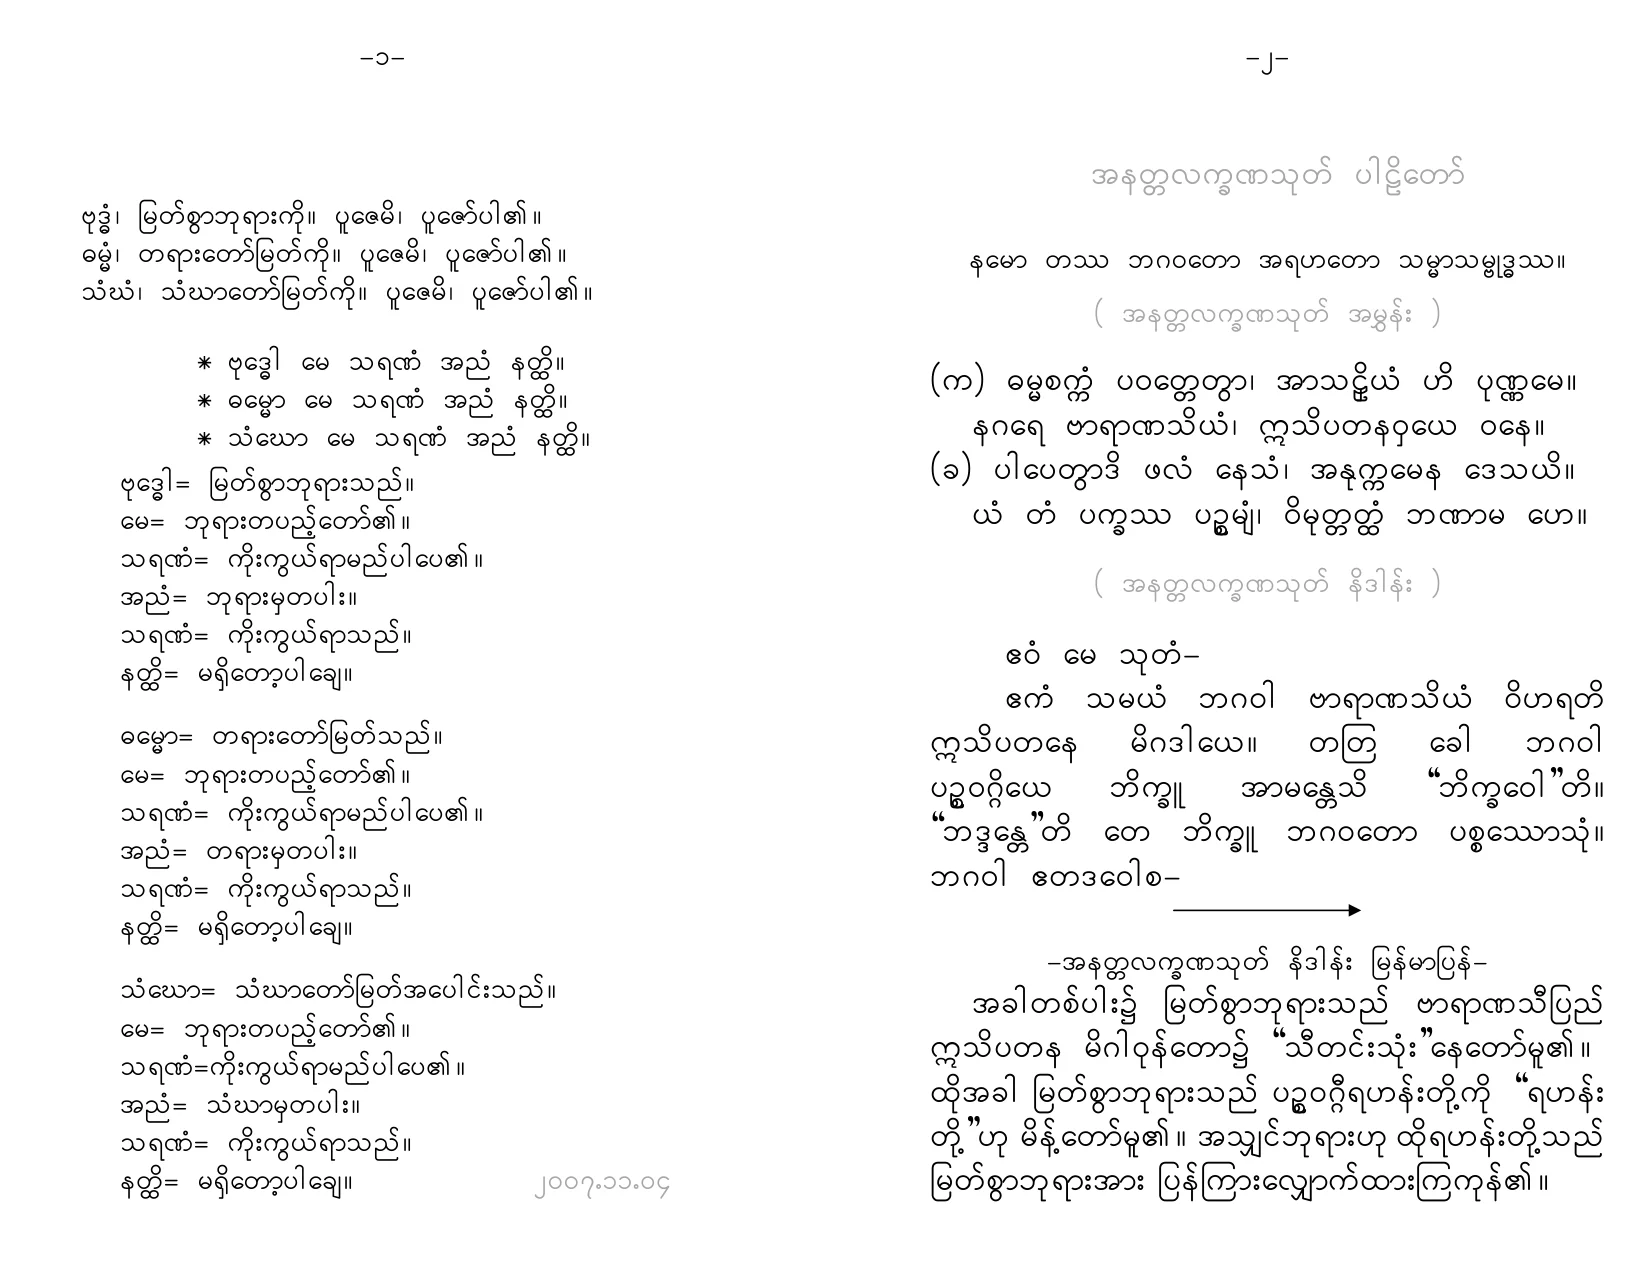 –၁–
ဗုဒ္ဓံ၊ မြတ်စွာဘုရားကို။ ပူဇေမိ၊ ပူဇော်ပါ၏။
ဓမ္မံ၊ တရားတော်မြတ်ကို။ ပူဇေမိ၊ ပူဇော်ပါ၏။
သံဃံ၊ သံဃာတော်မြတ်ကို။ ပူဇေမိ၊ ပူဇော်ပါ၏။
* ဗုဒ္ဓေါ မေ သရဏံ အညံ နတ္ထိ။
* ဓမ္မော မေ သရဏံ အညံ နတ္ထိ။
* သံဃော မေ သရဏံ အညံ နတ္ထိ။
ဗုဒ္ဓေါ= မြတ်စွာဘုရားသည်။
မေ= ဘုရားတပည့်တော်၏။
သရဏံ= ကိုးကွယ်ရာမည်ပါပေ၏။
အညံ= ဘုရားမှတပါး။
သရဏံ= ကိုးကွယ်ရာသည်။
နတ္ထိ= မရှိတော့ပါချေ။
ဓမ္မော= တရားတော်မြတ်သည်။
မေ= ဘုရားတပည့်တော်၏။
သရဏံ= ကိုးကွယ်ရာမည်ပါပေ၏။
အညံ= တရားမှတပါး။
သရဏံ= ကိုးကွယ်ရာသည်။
နတ္ထိ= မရှိတော့ပါချေ။
သံဃော= သံဃာတော်မြတ်အပေါင်းသည်။
မေ= ဘုရားတပည့်တော်၏။
သရဏံ=ကိုးကွယ်ရာမည်ပါပေ၏။
အညံ= သံဃာမှတပါး။
သရဏံ= ကိုးကွယ်ရာသည်။
နတ္ထိ= မရှိတော့ပါချေ။
၂၀၀၇.၁၁.၀၄
–၂–
အနတ္တလက္ခဏသုတ် ပါဠိတော်
နမော တဿ ဘဂဝတော အရဟတော သမ္မာသမ္ဗုဒ္ဓဿ။
( အနတ္တလက္ခဏသုတ် အမွှန်း )
(က) ဓမ္မစက္ကံ ပဝတ္တေတွာ၊ အာသဠှိယံ ဟိ ပုဏ္ဏမေ။
နဂရေ ဗာရာဏသိယံ၊ ဣသိပတနဝှယေ ဝနေ။
(ခ) ပါပေတွာဒိ ဖလံ နေသံ၊ အနုက္ကမေန ဒေသယိ။
ယံ တံ ပက္ခဿ ပဉ္စမျံ၊ ဝိမုတ္တတ္ထံ ဘဏာမ ဟေ။
( အနတ္တလက္ခဏသုတ် နိဒါန်း )
ဧဝံ မေ သုတံ–
ဧကံ သမယံ ဘဂဝါ ဗာရာဏသိယံ ဝိဟရတိ
ဣသိပတနေ မိဂဒါယေ။ တတြ ခေါ ဘဂဝါ
ပဉ္စဝဂ္ဂိယေ ဘိက္ခူ အာမန္တေသိ “ဘိက္ခဝေါ”တိ။
“ဘဒ္ဒန္တေ”တိ တေ ဘိက္ခူ ဘဂဝတော ပစ္စဿောသုံ။
ဘဂဝါ ဧတဒဝေါစ–
–အနတ္တလက္ခဏသုတ် နိဒါန်း မြန်မာပြန်–
အခါတစ်ပါး၌ မြတ်စွာဘုရားသည် ဗာရာဏသီပြည်
ဣသိပတန မိဂါဝုန်တော၌ “သီတင်းသုံး”နေတော်မူ၏။
ထိုအခါ မြတ်စွာဘုရားသည် ပဉ္စဝဂ္ဂီရဟန်းတို့ကို “ရဟန်း
တို့”ဟု မိန့်တော်မူ၏။ အသျှင်ဘုရားဟု ထိုရဟန်းတို့သည်
မြတ်စွာဘုရားအား ပြန်ကြားလျှောက်ထားကြကုန်၏။